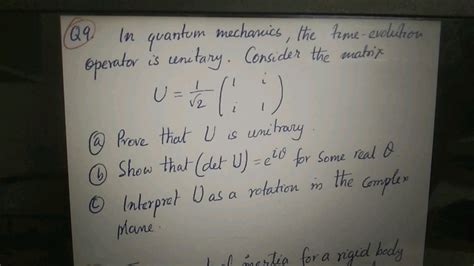 Q9. In quantum mechanics, the time-evolution
operator is unitary. Consider the matrix
U = 1/√2 ( 1 i
i 1 )
(a) Prove that U is unitrary.
(b) Show that (det U) = e^{iθ} for some real θ
(c) Interpret U as a rotation in the complex
plane.
of inertia for a rigid body